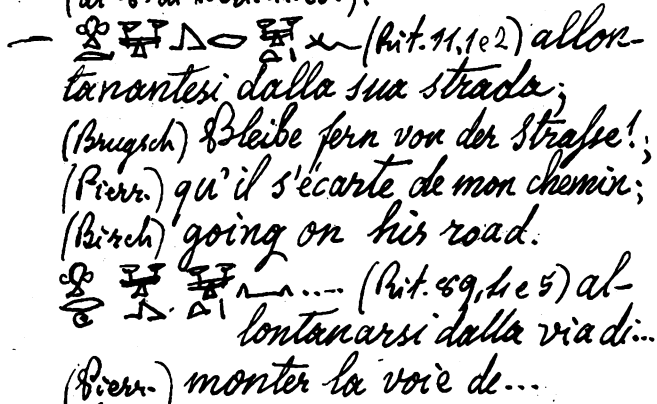 (Rit. 11, 1 e 2) allon-
tanantesi dalla sua strada;
(Brugsch) Bleibe fern von der Straſse!;
(Pierr.) qu'il s'écarte de mon chemin;
(Birch) going on his road.
.... (Rit. 89, 4 e 5) al-
lontanarsi dalla via di...
(Pierr.) monter la voie de...